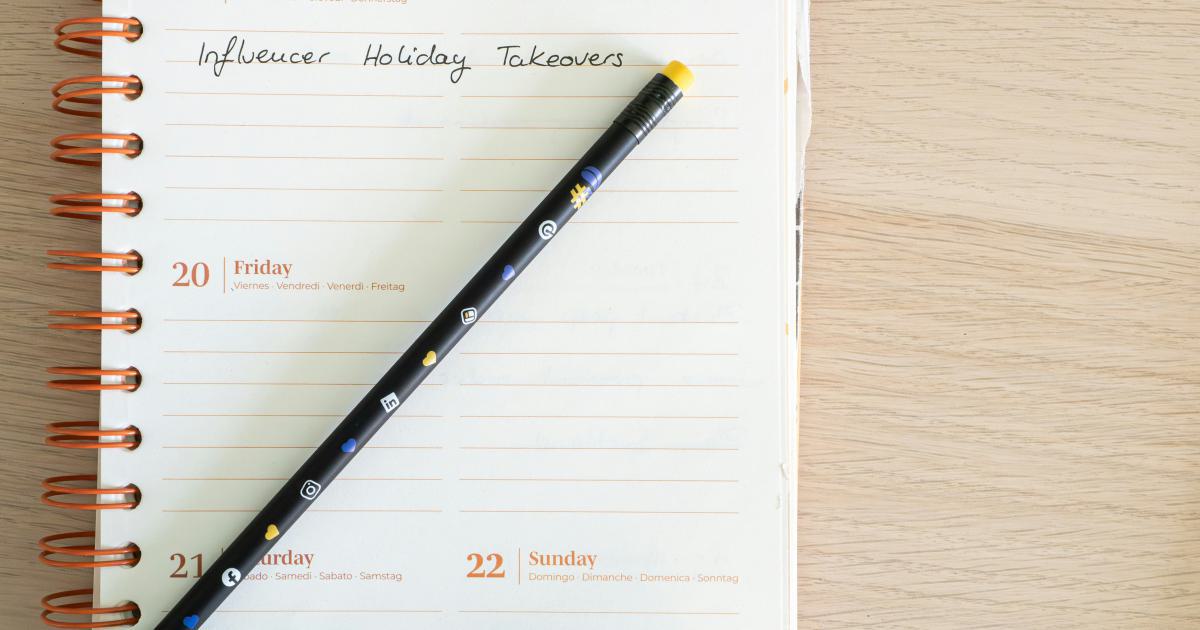 Influencer Holiday Takeovers
20 Friday
Viernes · Vendredi · Venerdì · Freitag
21 22 Sunday
Samedi · Sabato · Samstag Domingo · Dimanche · Domenica · Sonntag
#
in